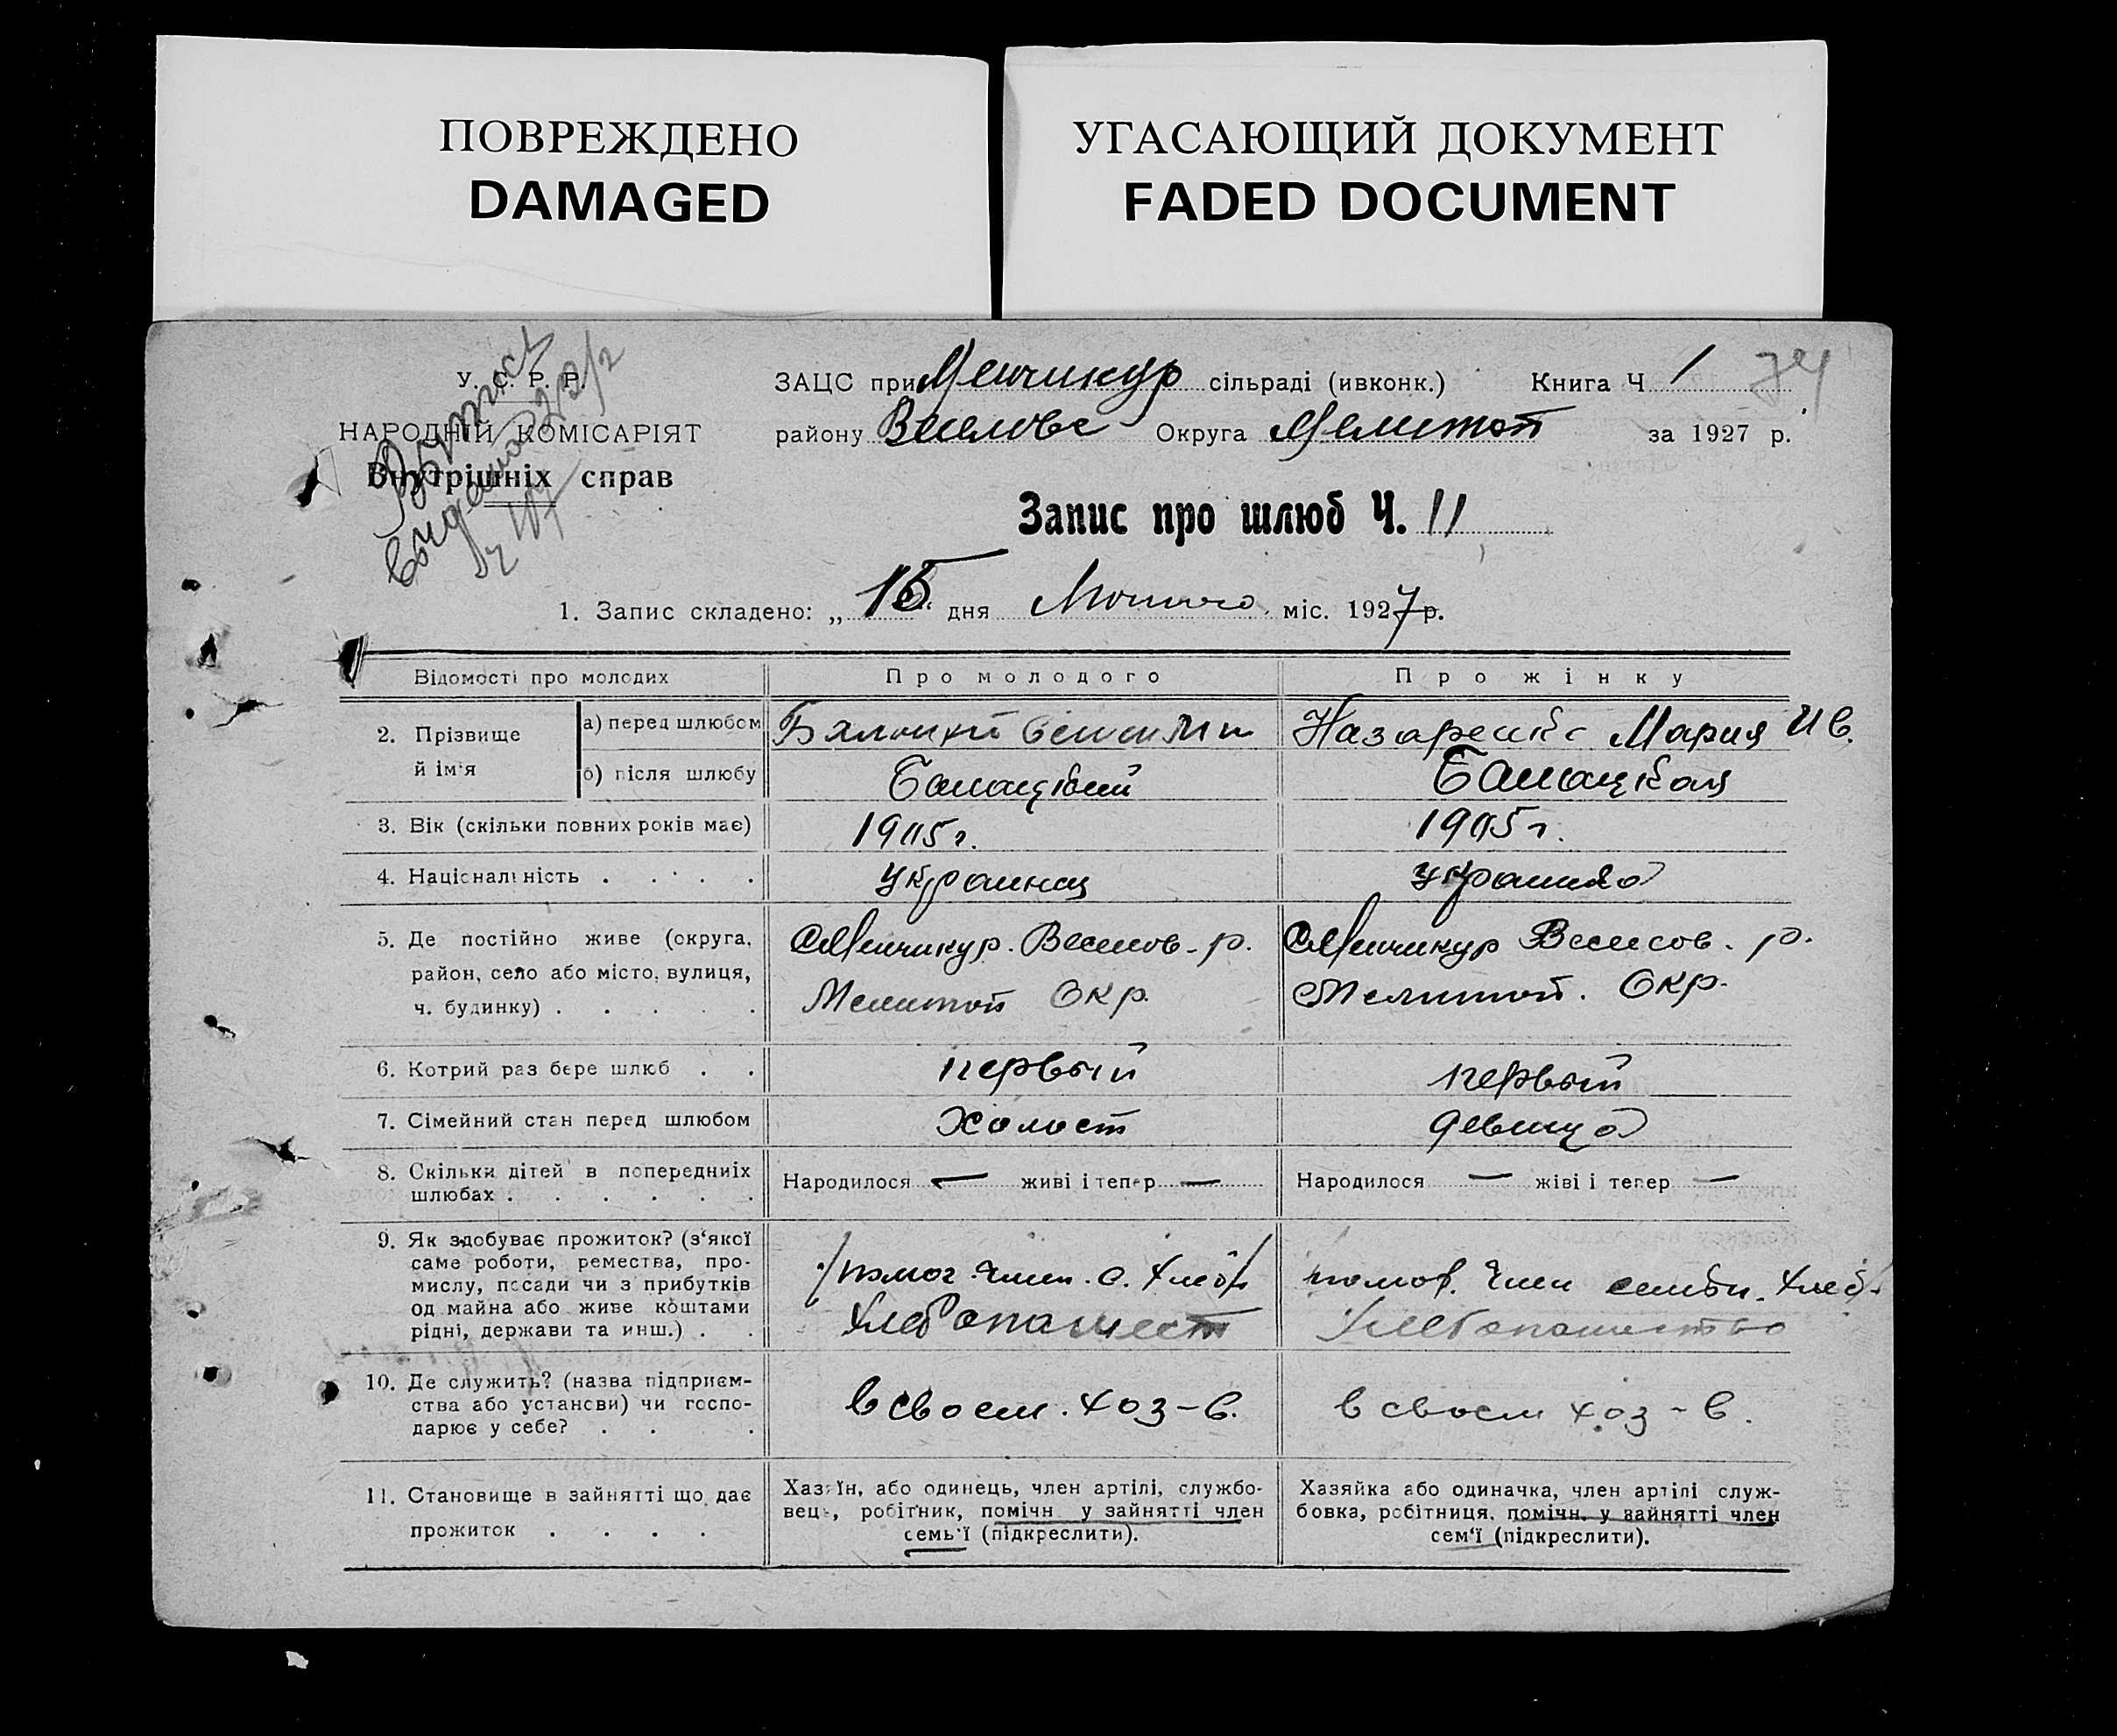 ПОВРЕЖДЕНО
DAMAGED
УГАСАЮЩИЙ ДОКУМЕНТ
FADED DOCUMENT
У. С. Р. Р.
НАРОДНІЙ КОМІСАРІЯТ
Внутрішніх справ
ЗАЦС при Менчикур сільраді (ивконк.) Книга Ч 1 74
району Веселовс Округа Мелитоп за 1927 р.
Запис про шлюб Ч. 11
1. Запис складено: „15“ дня Лютого міс. 1927 р.
Відомості про молодих
Про молодого
Про жінку
2. Прізвище й ім'я
а) перед шлюбом
Назаренко Мария Ив.
б) після шлюбу
Балацкий
Балацкая
3. Вік (скільки повних років має)
1905 г.
1905 г.
4. Національність . . . . .
Украинец
украинка
5. Де постійно живе (округа,
район, село або місто, вулиця,
ч. будинку) . . . . .
с Менчикур. Веселов-р.
Мелитоп Окр.
с Менчикур Веселов. р.
Мелитоп. Окр.
6. Котрий раз бере шлюб . .
первый
первый
7. Сімейний стан перед шлюбом
Холост
девица
8. Скільки дітей в попередниіх
шлюбах . . . . . .
Народилося — живі і тепер —
Народилося — жіві і тепер —
9. Як здобуває прожиток? (з‘якої
саме роботи, ремества, про-
мислу, посади чи з прибутків
од майна або живе коштами
рідні, держави та инш.) . .
помог. член. с. хлеб
Хлебопашест
помог. член семьи. хлеб.
Хлебопашество
10. Де служить? (назва підприєм-
ства або установи) чи госпо-
дарює у себе? . . .
в своем. хоз-в.
в своем хоз-в.
11. Становище в зайнятті що дає
прожиток . . . .
Хазяїн, або одинець, член артілі, службо-
вець, робітник, помічн у зайнятті член
семь'ї (підкреслити).
Хазяйка або одиначка, член артілі служ-
бовка, робітниця, помічн. у зайнятті член
сем‘ї (підкреслити).